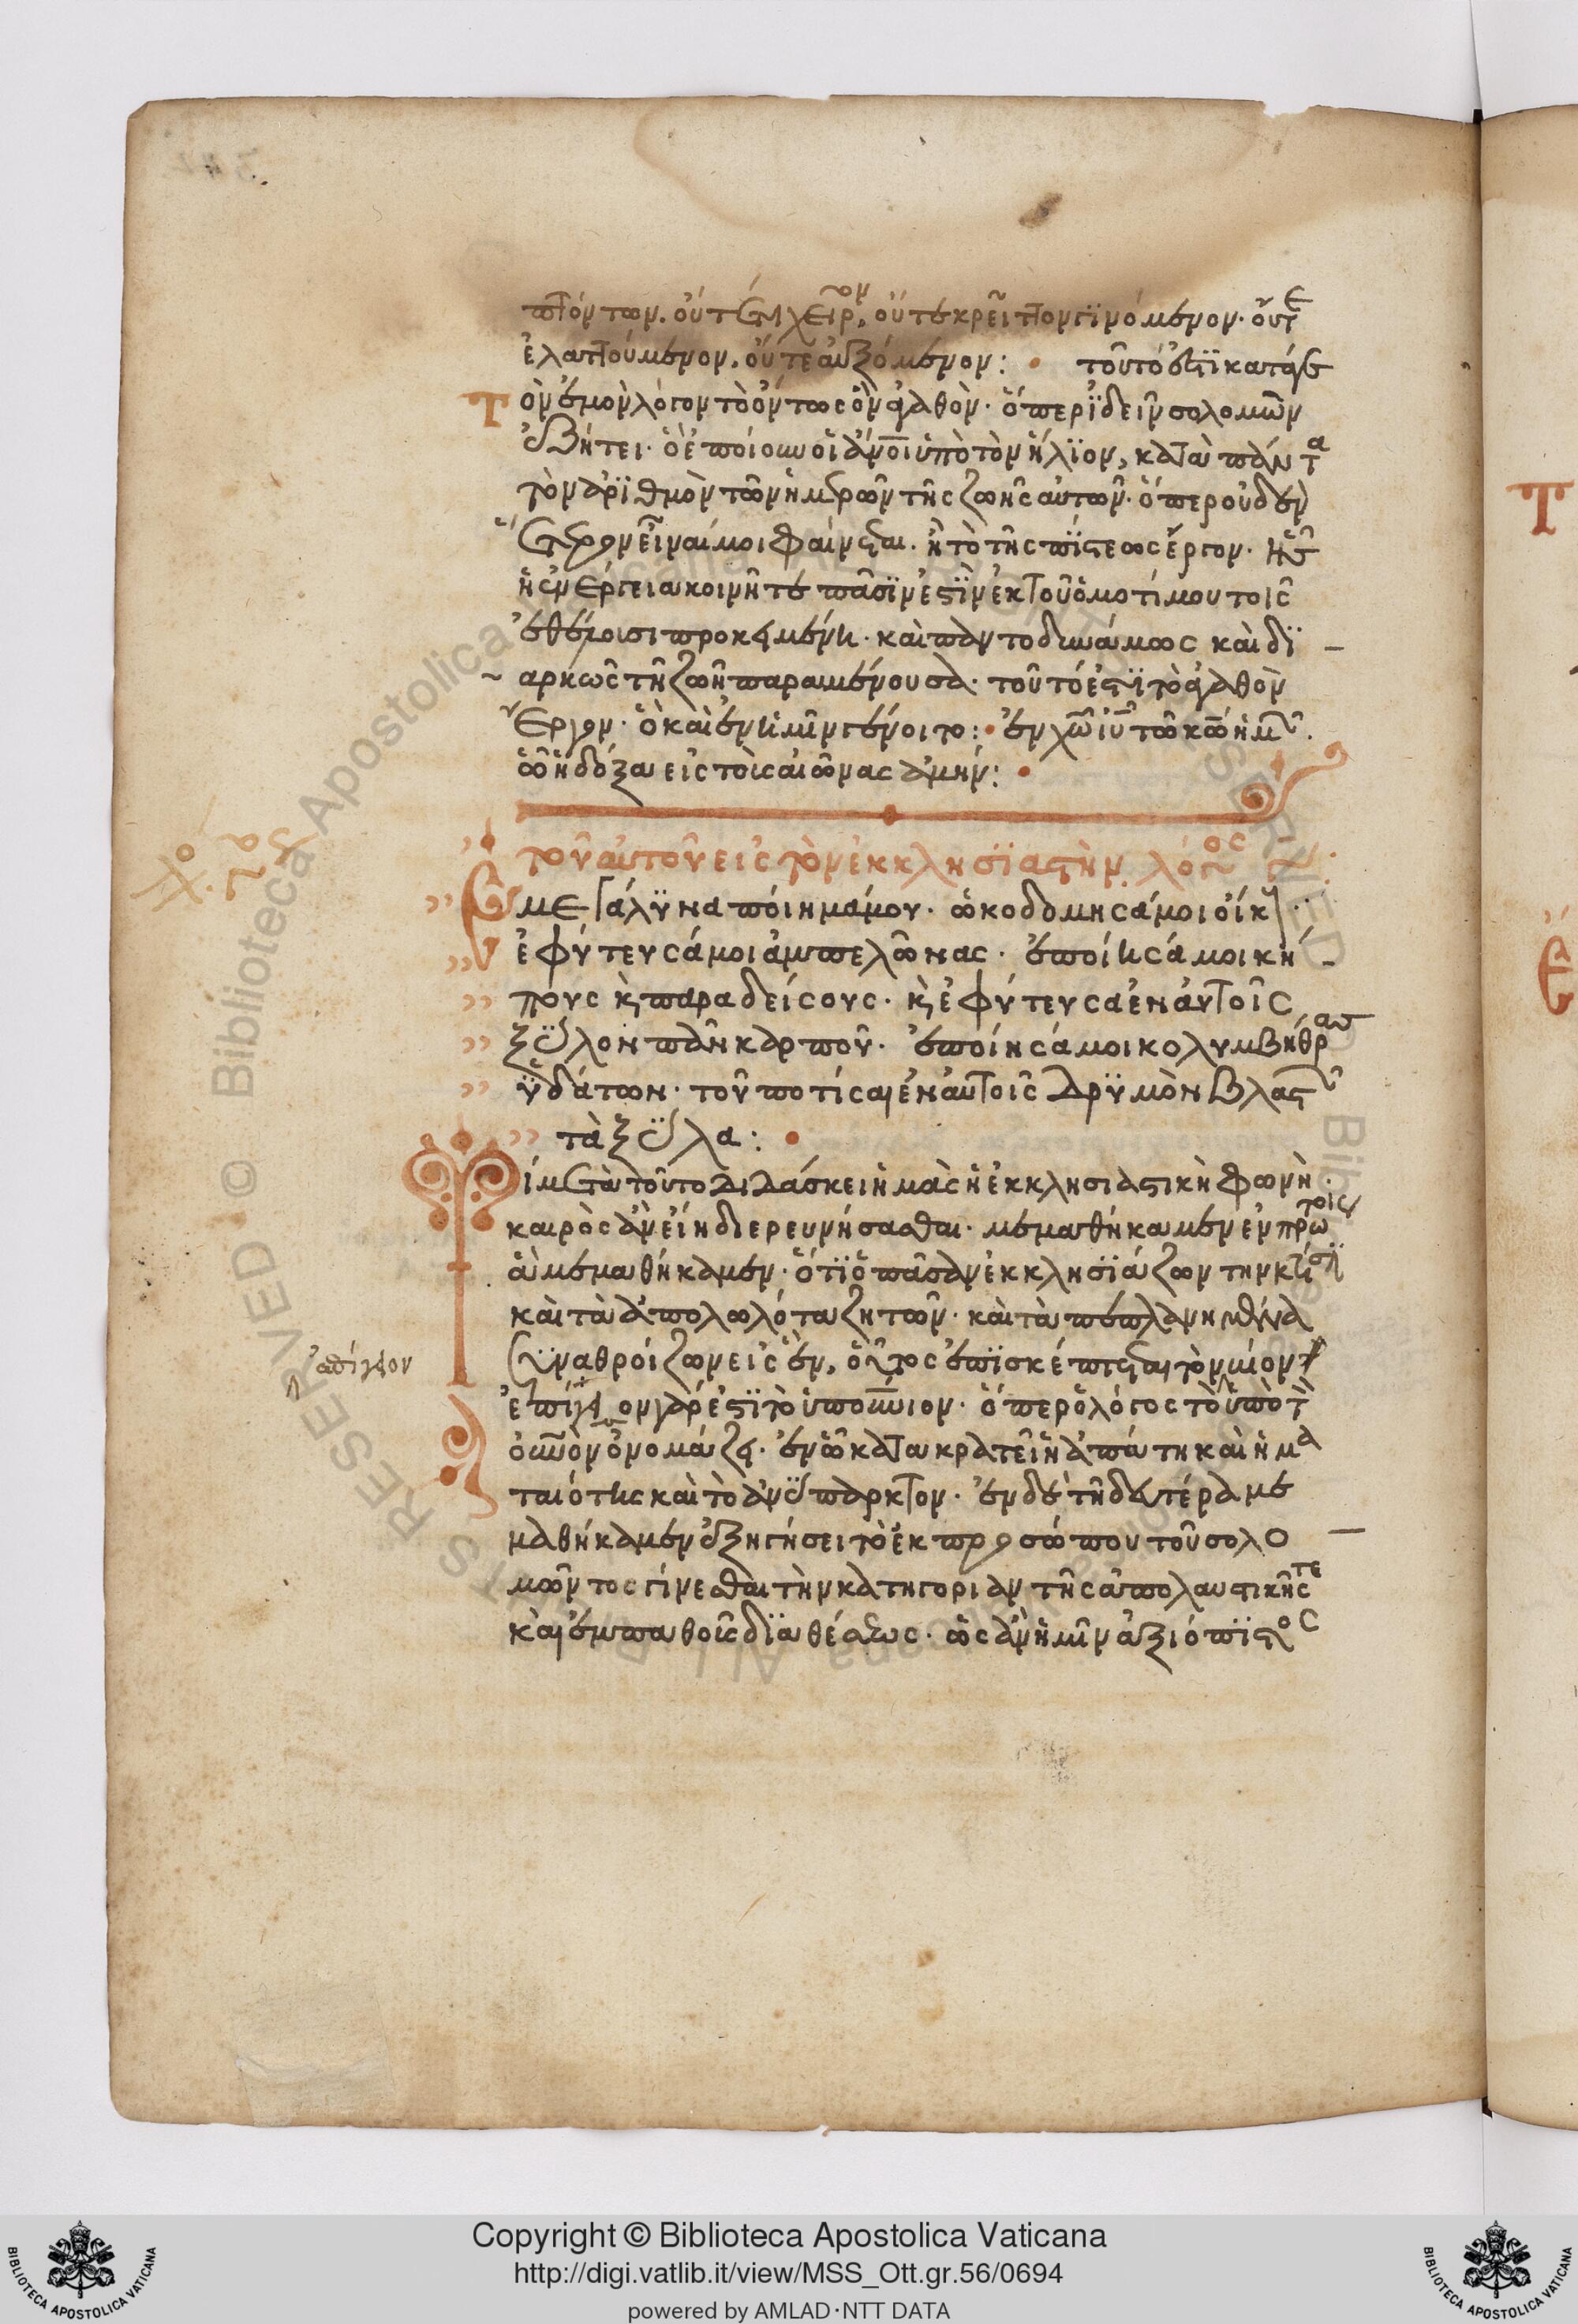 πτόντων. οὔτε χεῖρον, οὔτε κρεῖττον γϊνόμενον· οὔτε
ἐλαττούμενον, οὔτε αὐξόμενον: τοῦτό ἐστϊ κατά γε
τὸν ἐμὸν λόγον τὸ ὄντως ὂν ἀγαθὸν· ὅπερ ἰδεῖν σολομῶν
ἐζήτει· ὃ ἐποίουν οἱ ἄνοι ὑπὸ τὸν ἥλϊον, κατὰ πάντα
τὸν ἀρϊθμὸν τῶν ἡμερῶν τῆς ζωῆς αὐτῶν· ὅπερ οὐδὲν
ἕτερον εἶναί μοι φαίνεται. ἢ τὸ τῆς πίστεως ἔργον. ἧς
ἡ ἐνέργεια κοινή τε πᾶσίν ἐστϊν ἐκ τοῦ ὁμοτίμου τοῖς
ἐθέλουσι προκειμένη· καὶ παντοδυνάμως καὶ δϊ
αρκῶς τῇ ζωῇ παραμένουσα· τοῦτό ἐστϊ τὸ ἀγαθὸν
ἔργον· ὃ καὶ ἐν ἡμῖν γένοιτο: ἐν χῶ ιῦ τῶ κῶ ἡμῶν.
ὧ ἡ δόξα εἰς τοὺς αἰῶνας ἀμήν:
τοῦ αὐτοῦ εἰς τὸν ἐκκλησϊαστὴν λόγος
Ἐμεγάλϋνα ποίημά μου· ὠκοδόμησά μοι οἴκους·
ἐφύτευσά μοι ἀμπελῶνας· ἐποίησά μοι κή
πους κ παραδείσους· κ ἐφύτευσα ἐν αὐτοῖς
ξϋλον πᾶν καρποῦ· ἐποίησά μοι κολυμβήθρας
ὑδάτων· τοῦ ποτίσαι ἐν αὐτοῖς δρϋμὸν βλαστῶν
τὰ ξϋλα:
Τί μετὰ τοῦτο διδάσκει ἡμᾶς ἡ ἐκκλησιαστικὴ φωνὴ·
καιρὸς ἂν εἴη διερευνήσασθαι· μεμαθήκαμεν ἐν πρώτοις
ἃ μεμαθήκαμεν· ὅτϊ ὁ πᾶσαν ἐκκλησϊάζων τὴν κτίσϊν
καὶ τὰ ἀπολωλότα ζητῶν· καὶ τὰ πεπλανημένα
συναθροίζων εἰς ἓν, οὗτος ἐπϊσκέπτεται τὸν βίον
ἐπίγειον γάρ ἐστϊ τὸ ὑπουράνιον· ὅπερ ὁ λόγος τὸ ὑπὸ τὸν
οὐνὸν ὀνομάζει· ἐν ὧ κατακρατεῖ ἡ ἀπάτη καὶ ἡ μα
ταιότης καὶ τὸ ἀνϋπαρκτον· ἐν δὲ τῇ δευτέρα με
μαθήκαμεν ἐξηγήσει τὸ ἐκ προσώπου τοῦ σολο
μῶντος γίνεσθαι τὴν κατηγορίαν τῆς ἀπολαυστικῆς τε
καὶ ἐμπαθοῦς δϊαθέσεως· ὡς ἂν ἡμῖν ἀξιόπϊστος
Copyright © Biblioteca Apostolica Vaticana
http://digi.vatlib.it/view/MSS_Ott.gr.56/0694
powered by AMLAD·NTT DATA